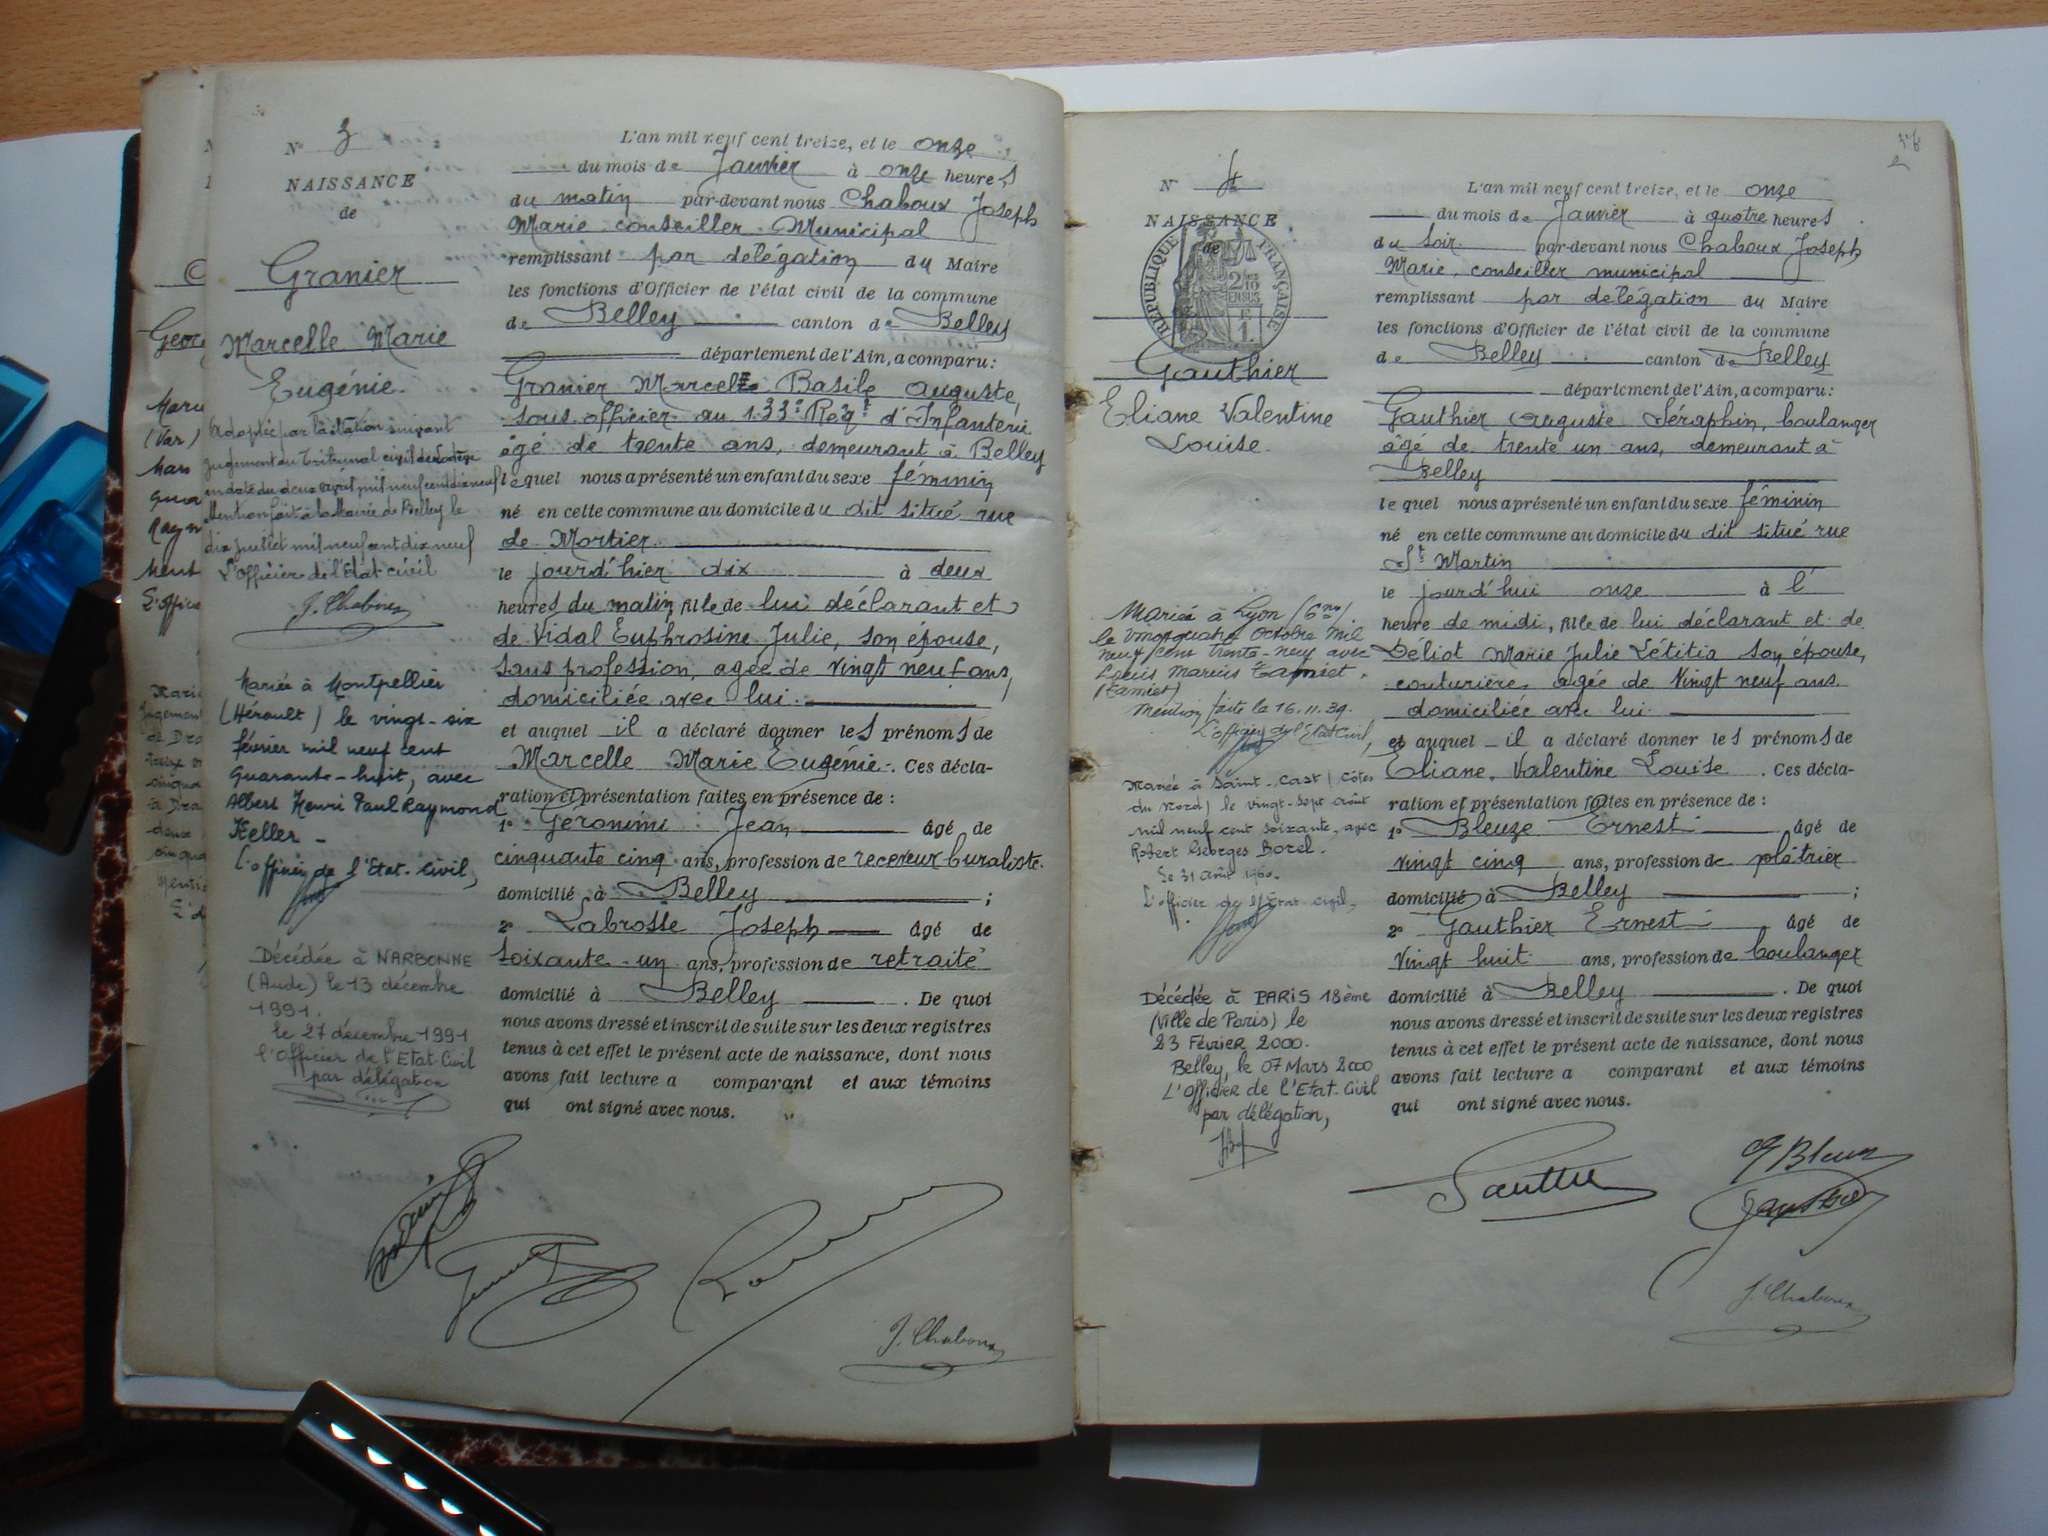 N° 3
NAISSANCE
de
Granier
Marcelle Marie
Eugénie.
Adoptée par la Nation suivant
jugement du Tribunal civil de Lodève
en date du deux avril mil neuf cent dix neuf
Mention fait à la Mairie de Belley le
dix juillet mil neuf cent dix neuf
L'officier de l'Etat civil
J. Chaboux
Mariée à Montpellier
(Hérault) le vingt-six
février mil neuf cent
quarante-huit, avec
Albert Henri Paul Raymond
Keller -
L'officier de l'Etat-Civil,
Décédée à NARBONNE
(Aude) le 13 décembre
1991.
le 27 décembre 1991
l'Officier de l'Etat-Civil
par délégation
L'an mil neuf cent treize, et le onze
du mois de Janvier à onze heures
du matin par-devant nous Chaboux Joseph
Marie conseiller Municipal
remplissant par délégation du Maire
les fonctions d'Officier de l'état civil de la commune
de Belley canton de Belley
département de l'Ain, a comparu:
Granier Marcel Basile Auguste,
sous officier au 133e Regt d'Infanterie
âgé de trente ans, demeurant à Belley
lequel nous a présenté un enfant du sexe féminin
né en cette commune au domicile du dit situé rue
de Mortier.
le jourd'hier dix à deux
heures du matin, fille de lui déclarant et
de Vidal Euphrosine Julie, son épouse,
sans profession, agée de vingt neuf ans,
domiciliée avec lui.
et auquel il a déclaré donner les prénoms de
Marcelle Marie Eugénie. Ces décla-
ration et présentation faites en présence de :
1° Geronimi Jean âgé de
cinquante cinq ans, profession de receveur buraliste
domicilié à Belley ;
2° Labrosse Joseph âgé de
soixante-un ans, profession de retraité
domicilié à Belley . De quoi
nous avons dressé et inscrit de suite sur les deux registres
tenus à cet effet le présent acte de naissance, dont nous
avons fait lecture a comparant et aux témoins
qui ont signé avec nous.
J. Chaboux
N° 4
NAISSANCE
de
RÉPUBLIQUE FRANÇAISE
Gauthier
Eliane Valentine
Louise.
Mariée à Lyon (6me)
le vingt quatre octobre mil
neuf cent trente-neuf avec
Louis Marius Tamiet.
(Tamiet)
Mention faite le 16.11.39.
L'officier de l'Etat Civil,
Mariée à Saint-Cast (Côtes
du Nord) le vingt-sept août
mil neuf cent soixante, avec
Robert Georges Borel.
Le 31 août 1960.
L'officier de l'Etat civil,
Décédée à PARIS 18ème
(Ville de Paris) le
23 Février 2000.
Belley, le 07 Mars 2000
L'Officier de l'Etat-Civil
par délégation,
L'an mil neuf cent treize, et le onze
du mois de Janvier à quatre heures
du soir par-devant nous Chaboux Joseph
Marie, conseiller municipal
remplissant par délégation du Maire
les fonctions d'Officier de l'état civil de la commune
de Belley canton de Belley
département de l'Ain, a comparu:
Gauthier Auguste Séraphin, boulanger
âgé de trente un ans, demeurant à
Belley
lequel nous a présenté un enfant du sexe féminin
né en cette commune au domicile du dit situé rue
St Martin
le jourd'hui onze à l'
heure de midi, fille de lui déclarant et de
Déliot Marie Julie Létitia son épouse,
couturière, agée de vingt neuf ans
domiciliée avec lui.
et auquel il a déclaré donner les prénoms de
Eliane, Valentine Louise . Ces décla-
ration et présentation faites en présence de :
1° Bleuze Ernest âgé de
vingt cinq ans, profession de plâtrier
domicilié à Belley ;
2° Gauthier Ernest âgé de
vingt huit ans, profession de boulanger
domicilié à Belley . De quoi
nous avons dressé et inscrit de suite sur les deux registres
tenus à cet effet le présent acte de naissance, dont nous
avons fait lecture a comparant et aux témoins
qui ont signé avec nous.
J. Chaboux